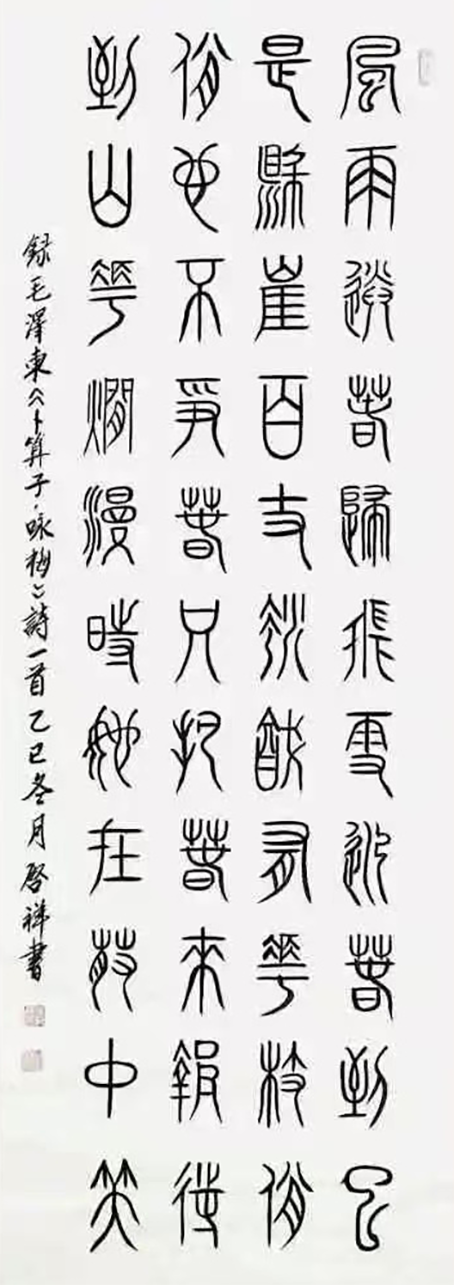 風雨送春歸飛雪迎春到已
是縣崖百丈冰猶有花枝俏
俏也不爭春只把春來報待
到山花爛漫時她在叢中笑
録毛澤東《卜算子·咏梅》詩一首乙巳冬月啓祥書